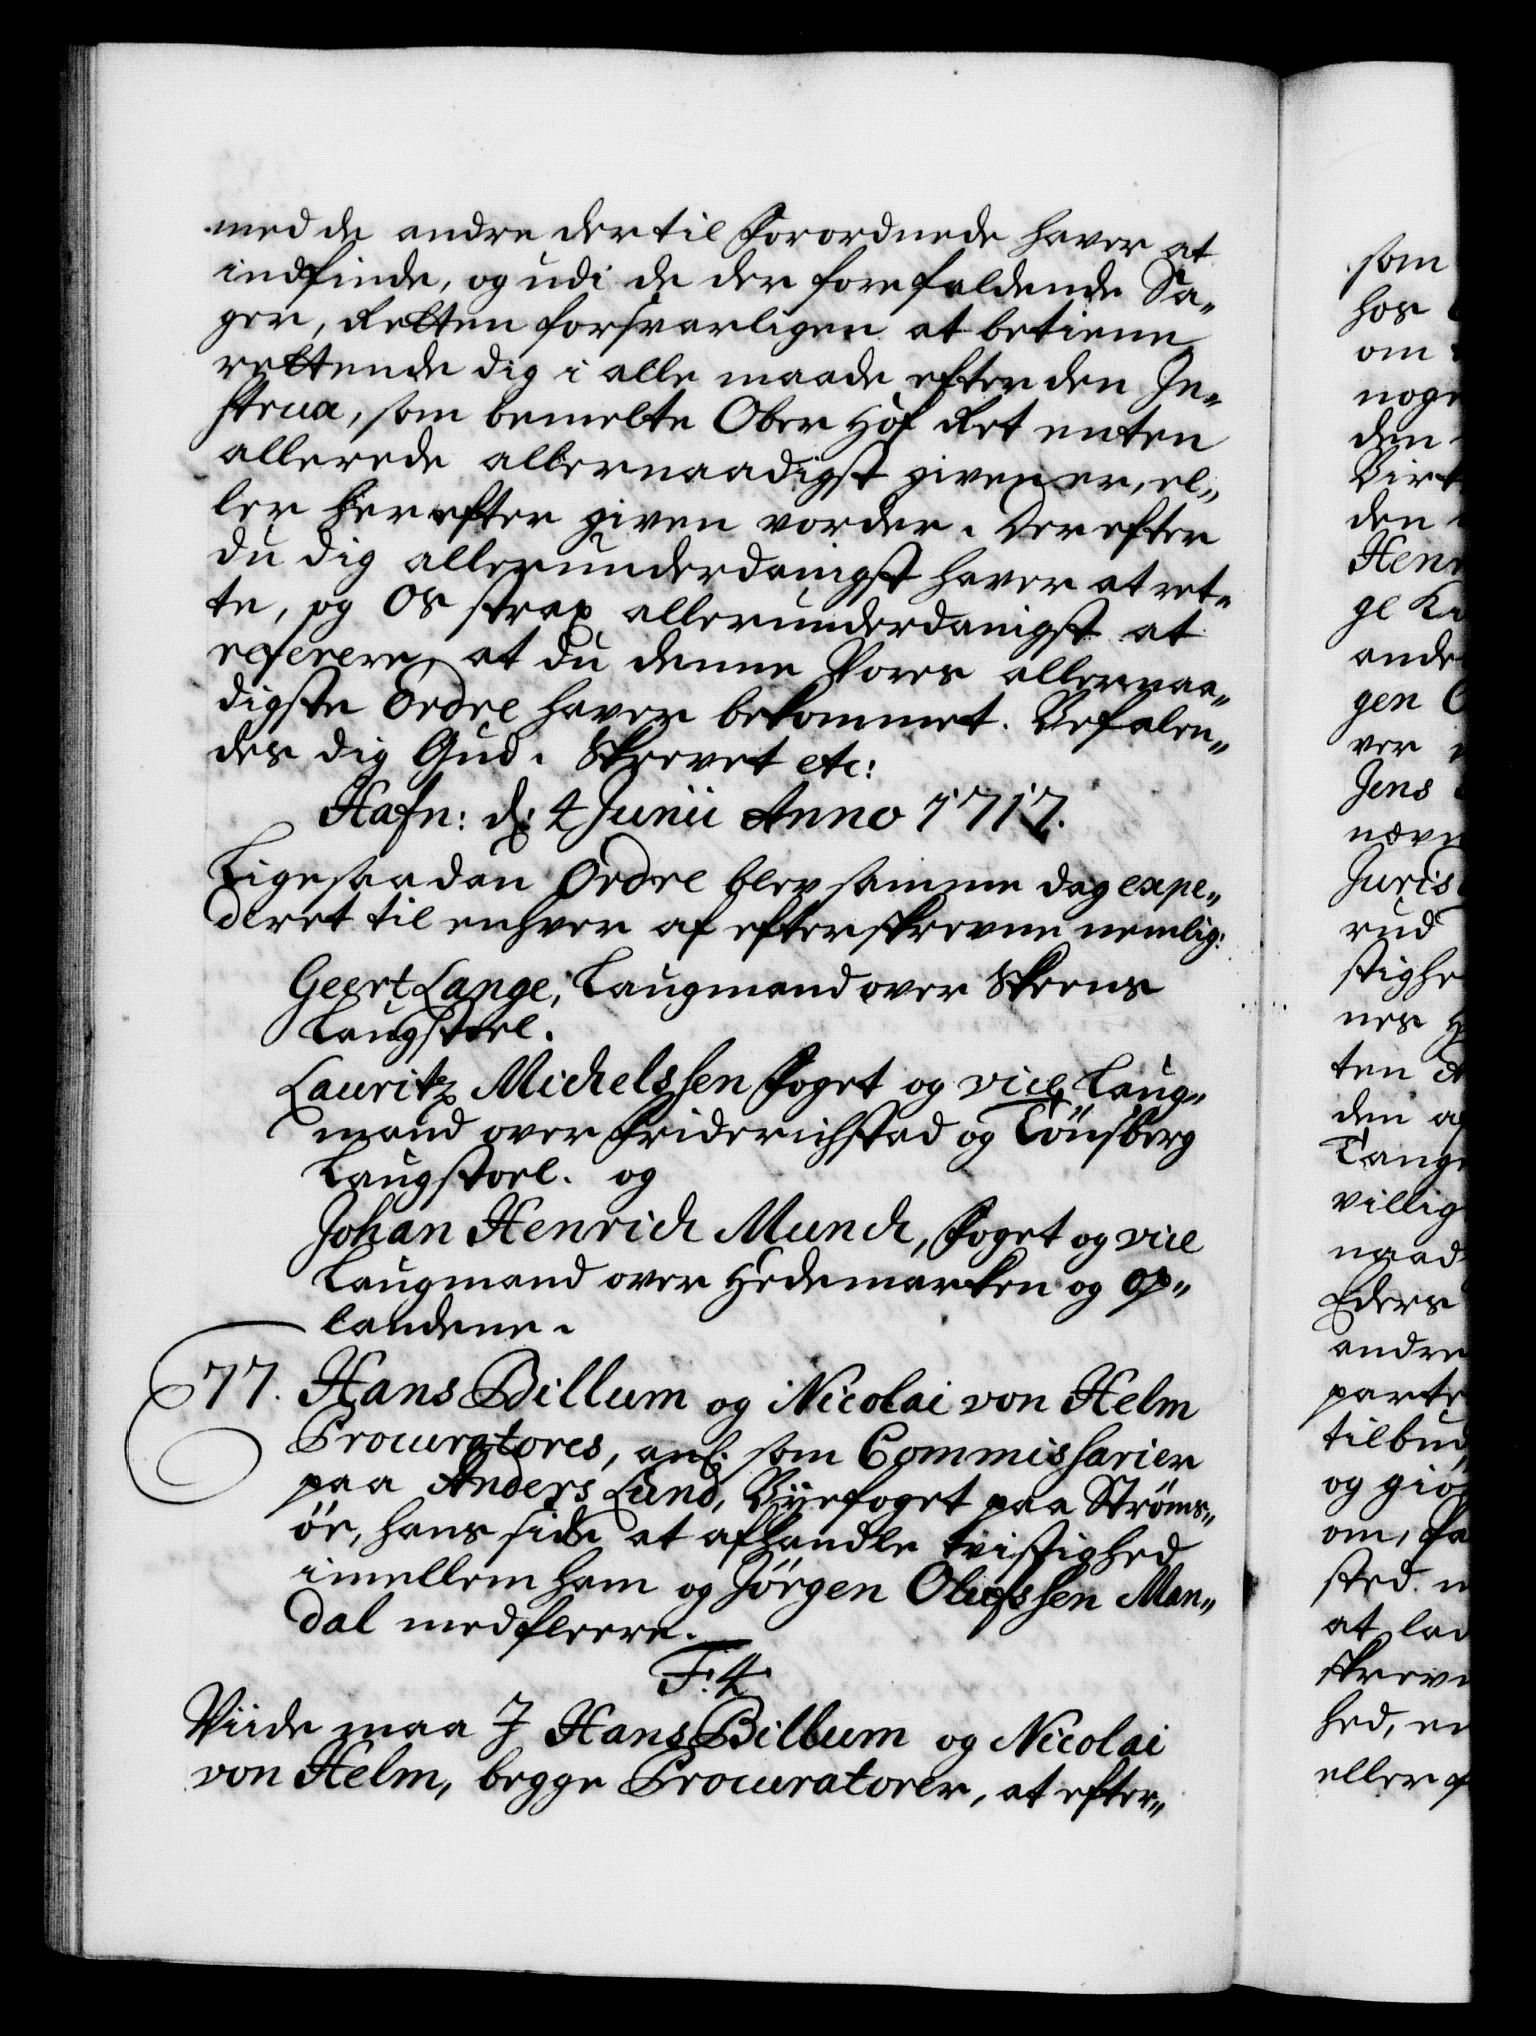 med de andre dertil Forordnede haver at
indfinde, og udi de der forefaldende Sa„
ger, Retten forsvarligen at betiene,
rettende dig i alle maade efter den In„
strux, som bemelte Ober Hof Ret enten
allerede allernaadigst given er, el„
ler herefter given vorder. Derefter
du dig allerunderdanigst haver at ret„
te, og Os strax allerunderdanigst at
referere, at du denne Vores allernaa„
digste Ordre haver bekommet. Befalen„
des dig Gud. Skrevet etc:
Hafn: d: 4 Junii Anno 1717.
Ligesaadan Ordre blev samme dag expe„
deret til enhver af efterskrevne nemlig:
Geert Lange, Laugmand over Skeens
Laugstoel.
Lauritz Michelssen Foget og vice Laug„
mand over Friderichstad og Tönsberg
Laugstoel. og
Johan Henrich Munch, Foget og vice
Laugmand over Hedemarken og Op„
landene.
77. Hans Billum og Nicolai von Helm
Procuratores, anl: som Commissarier
paa Anders Lund, Byefoget paa Ströms„
öe, hans side at afhandle tvistighed
imellem ham og Jörgen Olufssen Man„
dal med fleere.
F: 4.
Viide maa I Hans Billum og Nicolai
von Helm, begge Procuratorer, at efter„
som
hos
om
noge
den
Birk
den
Hen
ge
ande
gen
ver
Jens
nævn
Juris
rud
stighe
nes
ten
den af
Tange
villig
naad
Eders
andre
parte
tilbud
og giö
om,
sted.
at lad
skreve
hed, en
eller